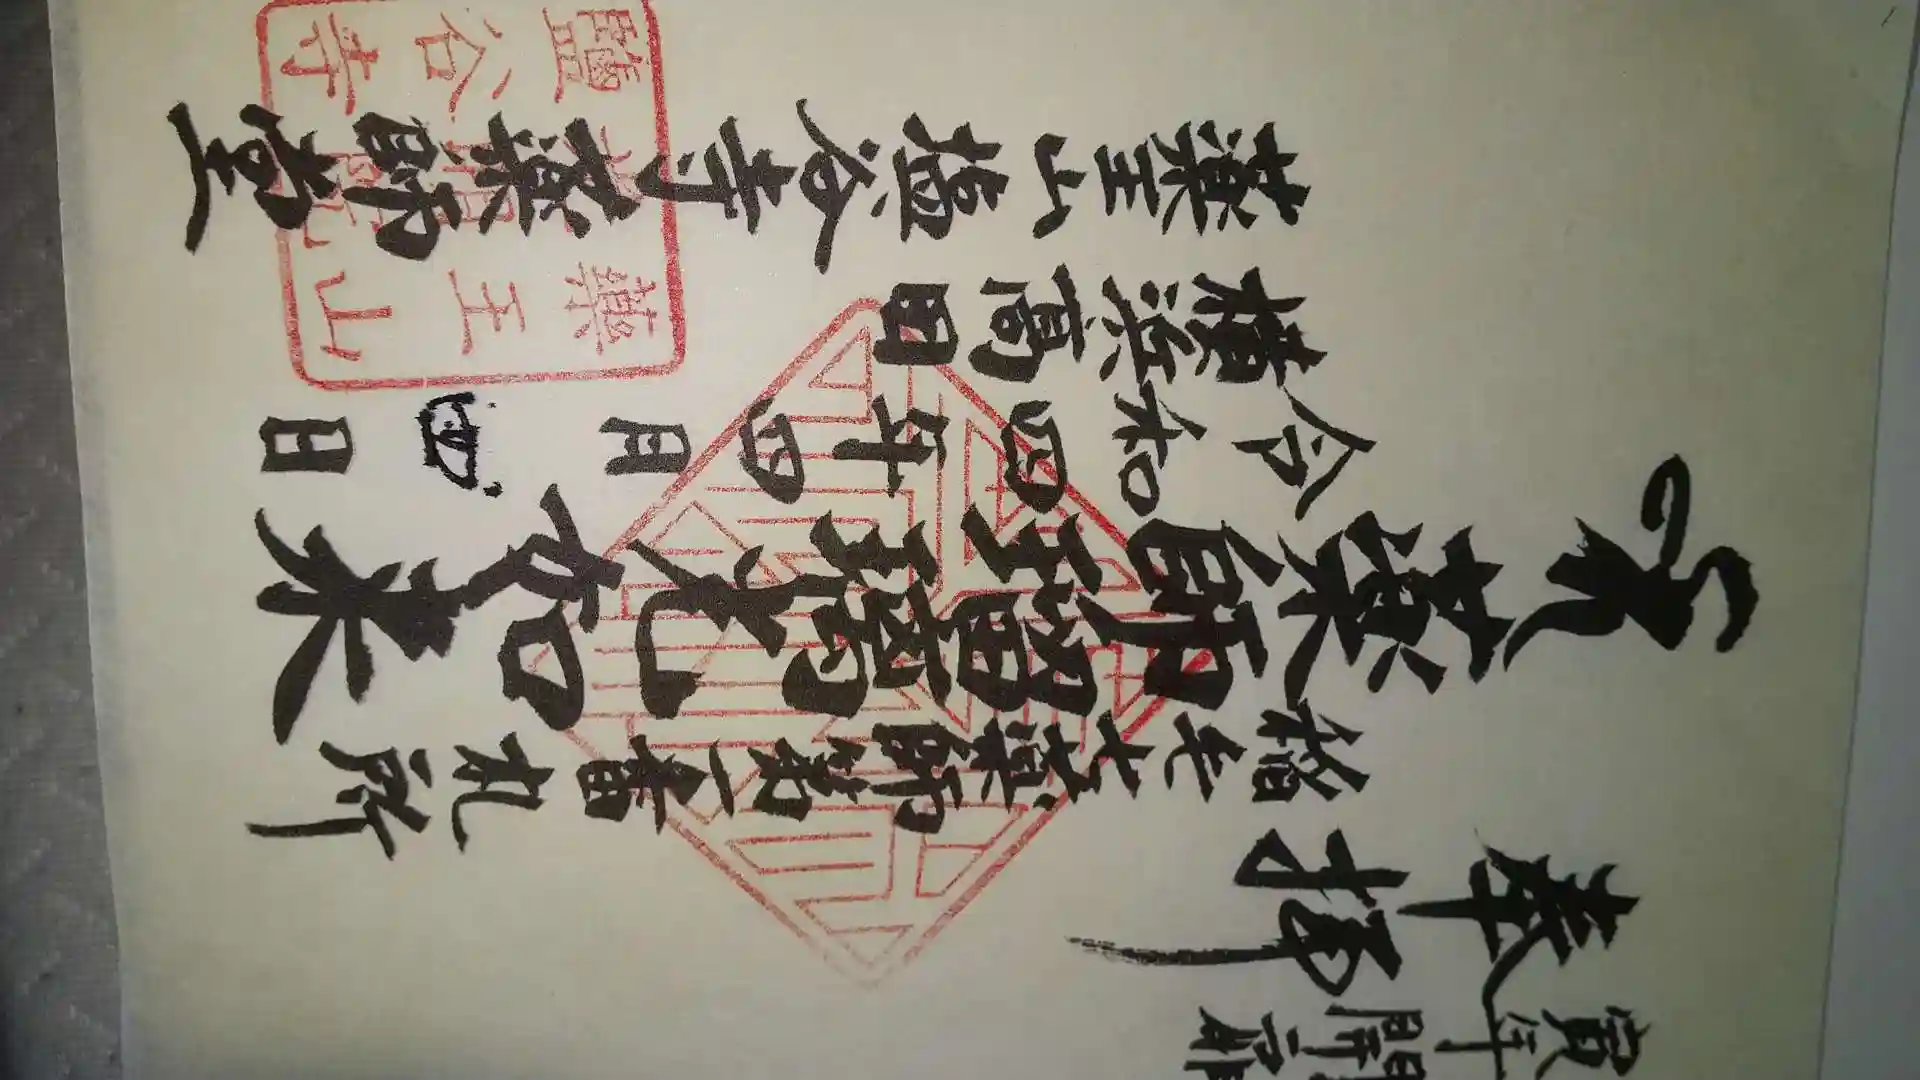 寅年開
奉拝
稲毛七薬師第一番札所
薬師瑠璃光如来
令和四年四月四日
横浜高田
薬王山塩谷寺薬師堂
藥王山
鹽谷寺